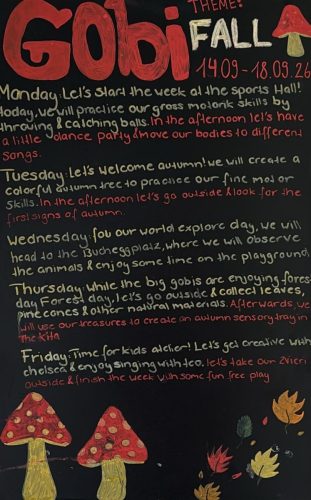 Gobi THEME:
FALL
14.09 - 18.09.26
Monday: Let's start the week at the sports Hall!
today, we will practice our gross motorik skills by
throwing & catching balls. In the afternoon let's have
a little dance party & move our bodies to different
songs.
Tuesday: Let's welcome autumn! we will create a
colorful autumn tree to practice our fine motor
skills. In the afternoon let's go outside & look for the
first signs of autumn.
Wednesday: for our world explore day, we will
head to the Bucheggplatz, where we will observe
the animals & enjoy some time on the playground,
Thursday: While the big gobis are enjoying fores
day Forest day, let's go outside & collect leaves,
pine cones & other natural materials. Afterwards, we
will use our treasures to create an autumn sensory tray in
the Kita
Friday: Time for kids atelier! Let's get creative with
chelsea & enjoy singing with tco. let's take our Zvieri
outside & finish the week with some fun free play